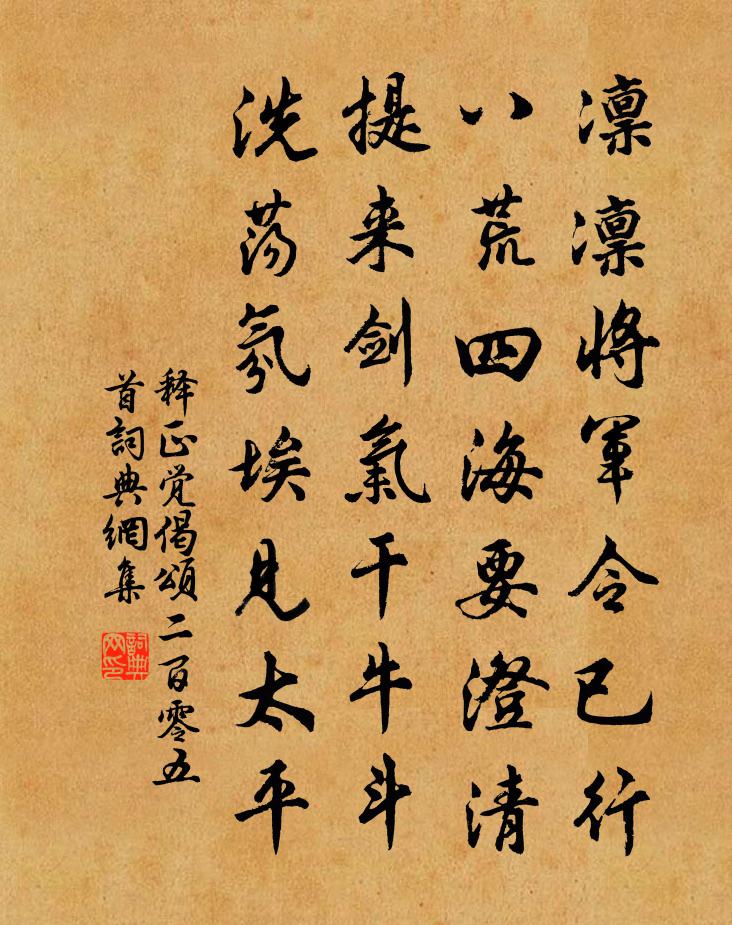 凛凛将軍令已行
八荒四海要澄清
提来剑氣干牛斗
洗荡氛埃見太平
释正覚偈頌二百零五
首詞典網集
詞典網印